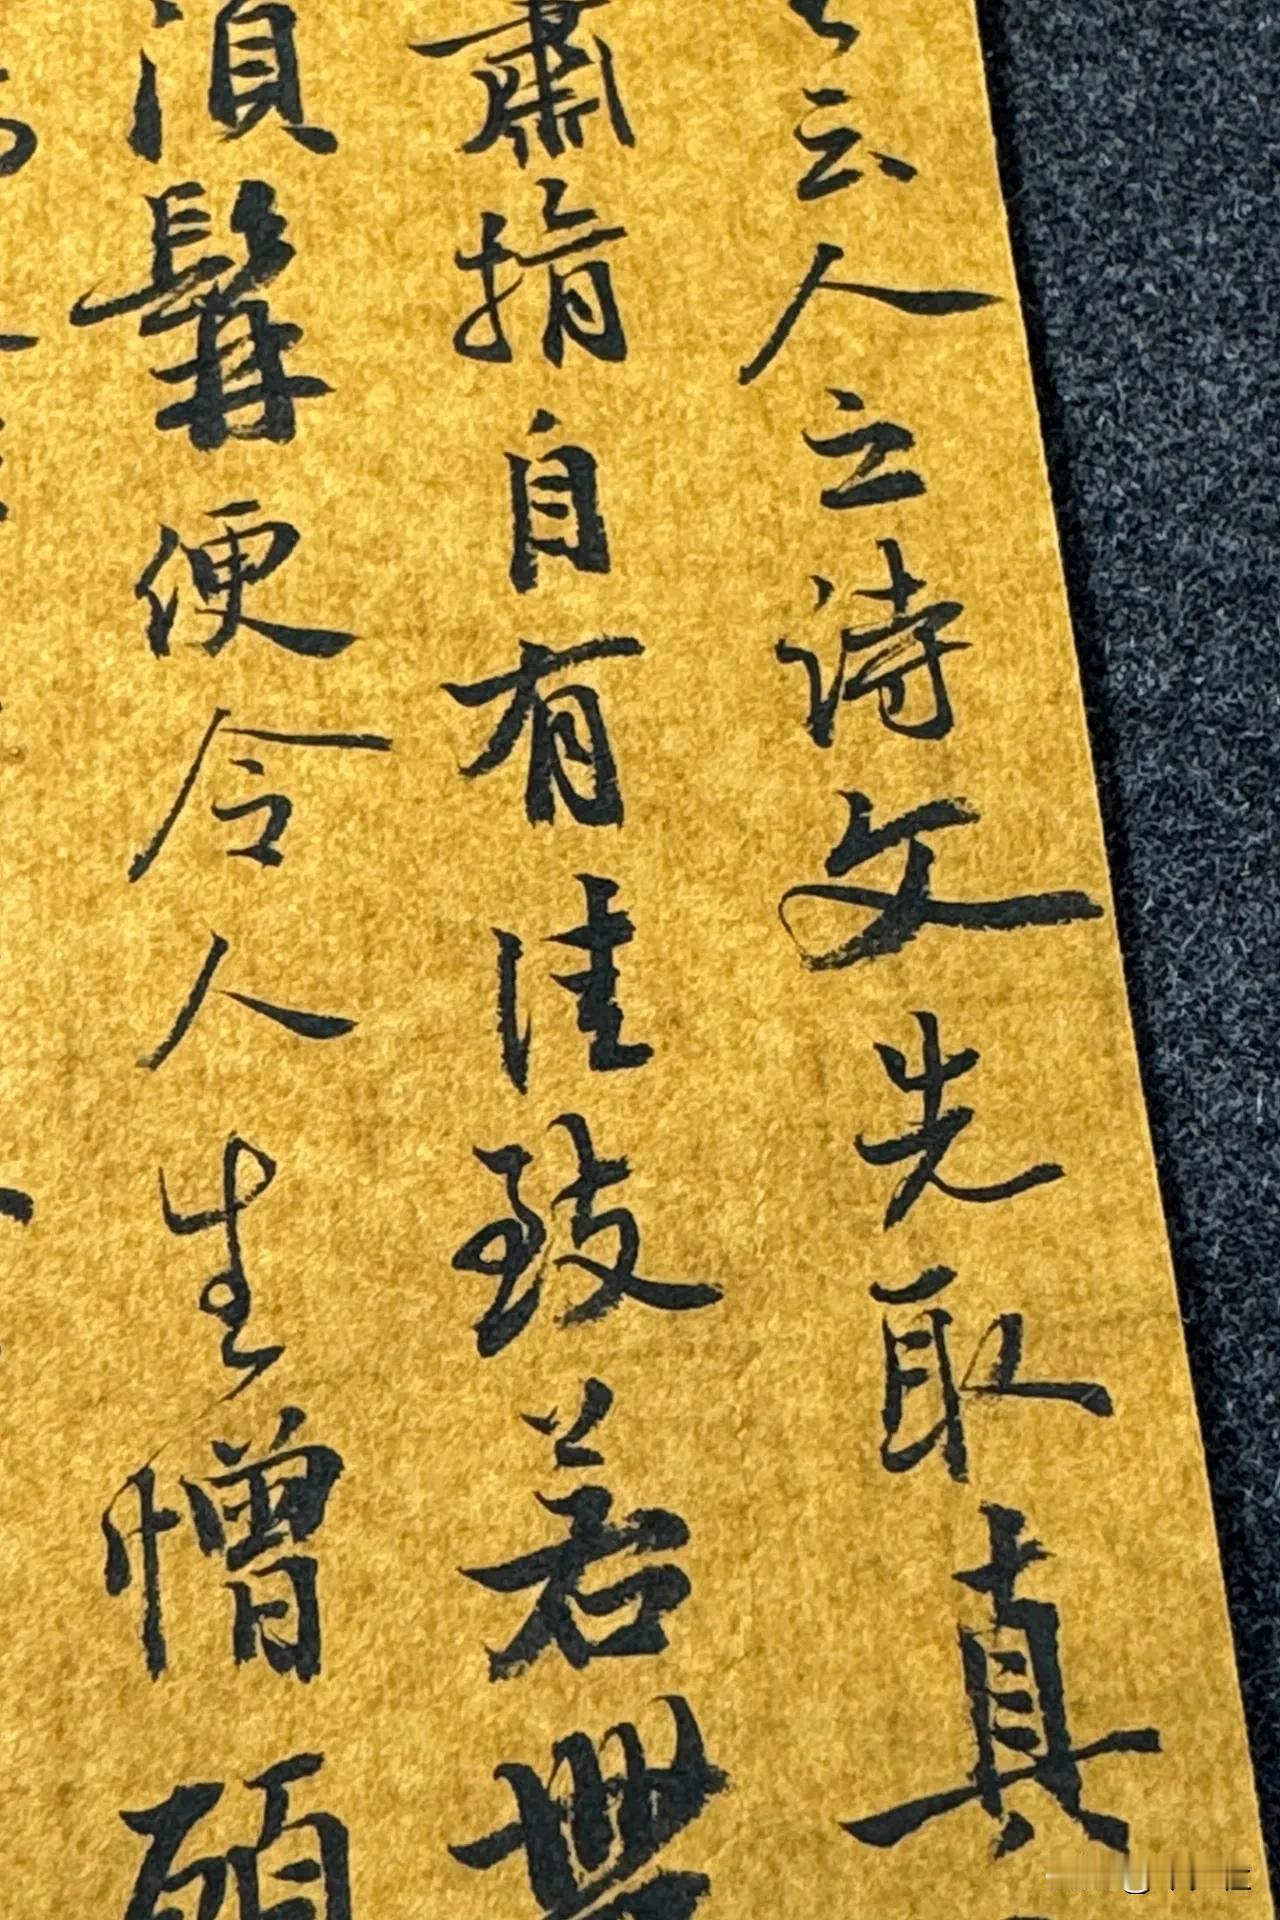 云人立诗文先取真
肅指自有佳致若無
須髯便令人生憎顧